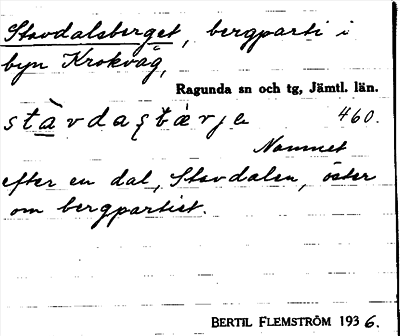 Stavdalsberget, bergparti i
byn Krokvåg,
Ragunda sn och tg, Jämtl. län.
460.
Namnet
efter en dal, Stavdalen, öster
om bergpartiet.
BERTIL FLEMSTRÖM 1936.